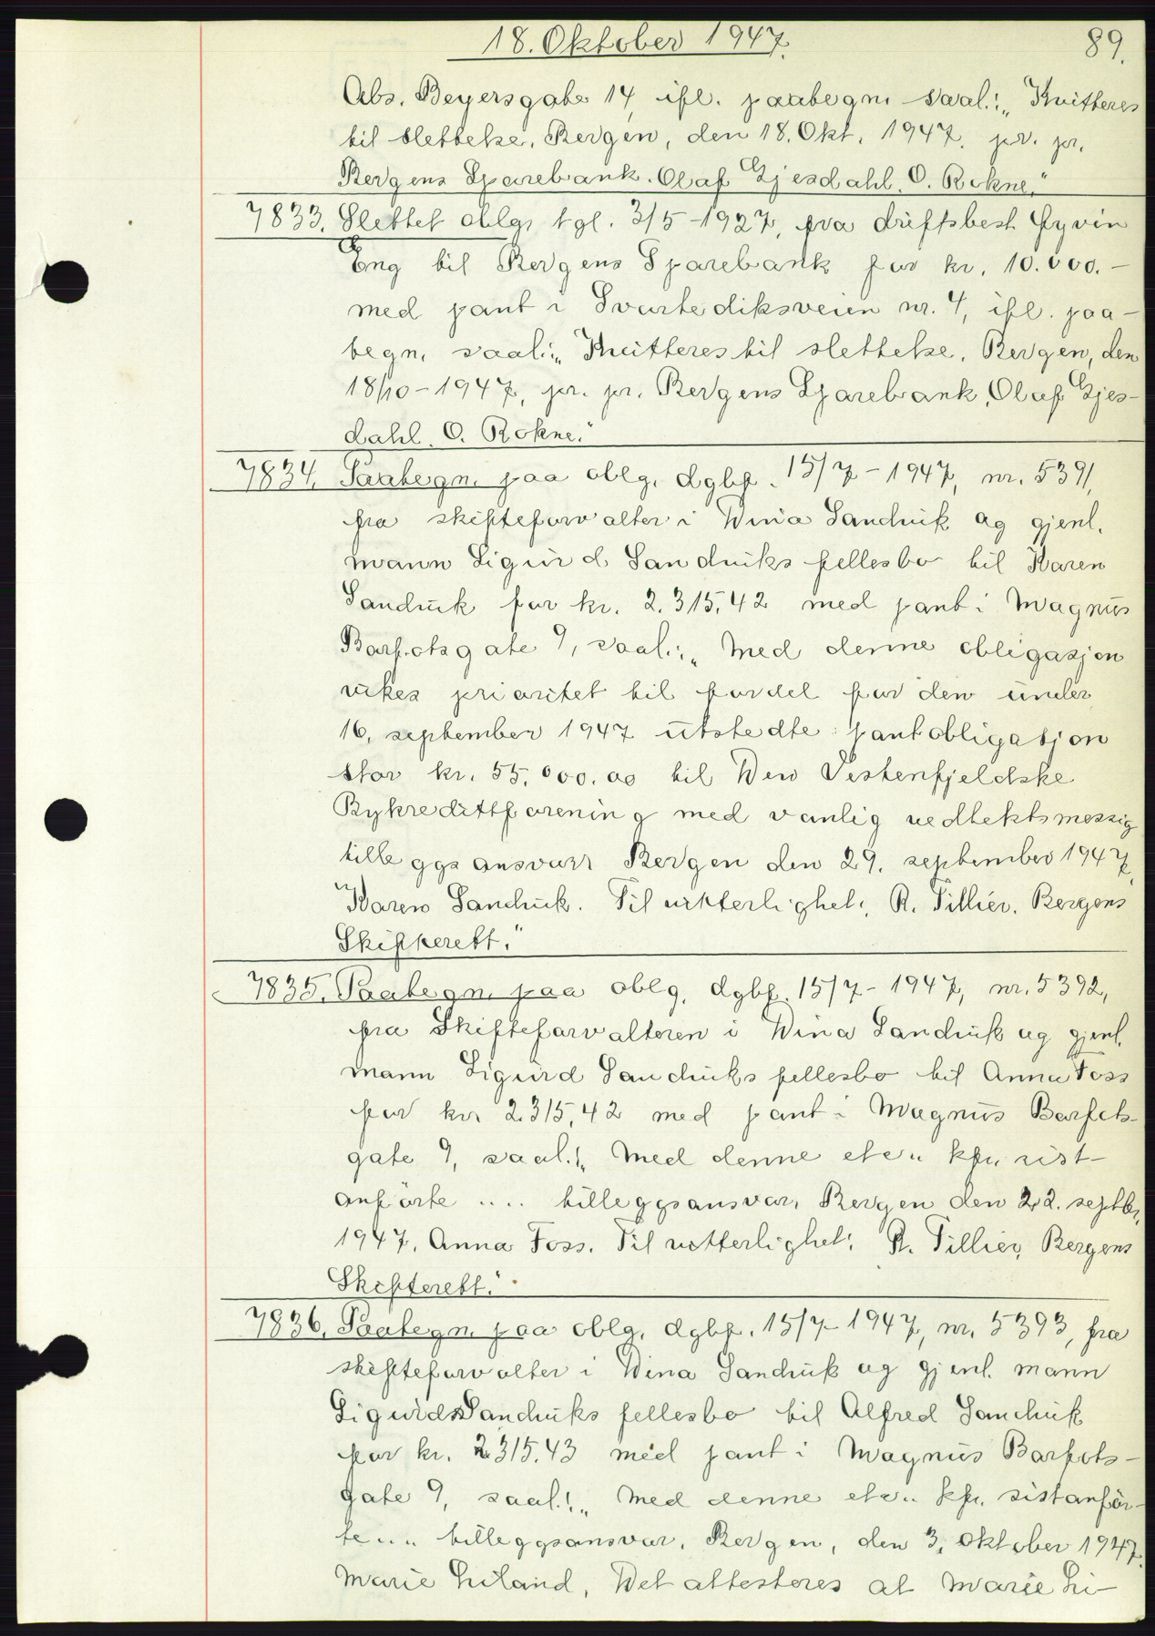 18. Oktober 1947.
89.
Abs. Beyersgate 14, ifl. paabegn. saal.: „Kvitteres
til slettelse. Bergen, den 18. Okt. 1947. pr. pr.
Bergens Sparebank. Olaf Gjesdahl. O. Rokne."
7833. Slettet oblg. tgl. 3/5-1927, fra driftsbest. Øyvin
Eng til Bergens Sparebank for kr. 10.000.-
med pant i Svartediksveien nr. 4, ifl. paa-
begn. saal.: „Kvitteres til slettelse. Bergen, den
18/10-1947, pr. pr. Bergens Sparebank, Olaf Gjes-
dahl. O. Rokne."
7834. Paabegn. paa oblg. dgbf. 15/7-1947, nr. 5391,
fra skifteforvalter i Dina Sandvik og gjenl.
mann Sigurd Sandviks fellesbo til Karen
Sandvik for kr. 2.315,42 med pant i Magnus
Barfotsgate 9, saal.: „Med denne obligasjon
vikes prioritet til fordel for den under
16. september 1947 utstedte pantobligasjon
stor kr. 55.000.00 til Den Vestenfjeldske
Bykredittforening med vanlig vedtektsmessig
tilleggsansvar. Bergen den 29. september 1947.
Karen Sandvik. Til vitterlighet: R. Tillier. Bergens
Skifterett."
7835. Paabegn. paa oblg. dgbf. 15/7-1947, nr. 5392,
fra Skifteforvalteren i Dina Sandvik og gjenl.
mann Sigurd Sandviks fellesbo til Anna Foss
for kr. 2.315,42 med pant i Magnus Barfots-
gate 9, saal.: „Med denne etc.. kfr. sist
anførte .... tilleggsansvar. Bergen den 22. septbr.
1947. Anna Foss. Til vitterlighet: R. Tillier, Bergens
Skifterett."
7836. Paabegn. paa oblg. dgbf. 15/7-1947, nr. 5393, fra
skifteforvalter i Dina Sandvik og gjenl. mann
Sigurd Sandviks fellesbo til Alfred Sandvik
for kr. 2.315.43 med pant i Magnus Barfots-
gate 9, saal.: „Med denne etc.. kfr. sistanfør-
te .... tilleggsansvar. Bergen, den 3. oktober 1947.
Marie Liland. Det attesteres at Marie Li-